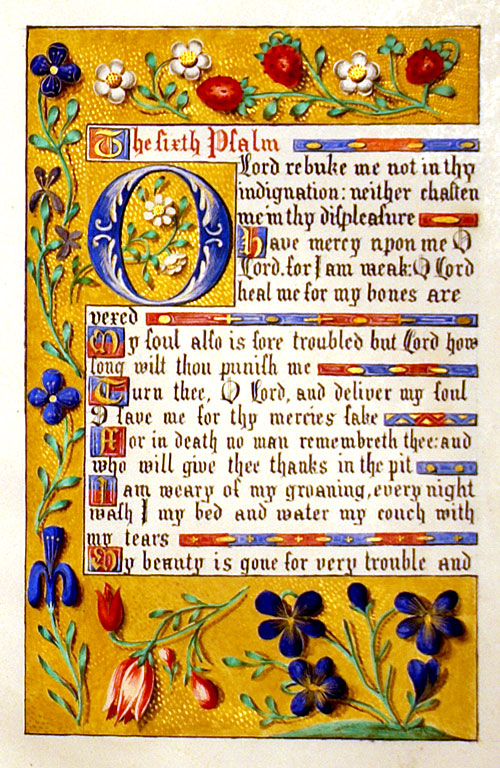 The sixth Psalm
O Lord rebuke me not in thy
indignation: neither chasten
me in thy displeasure
Have mercy upon me O
Lord. for I am weak: O Lord
heal me for my bones are
vexed
My soul also is sore troubled but Lord how
long wilt thou punish me
Turn thee, O Lord, and deliver my soul
O save me for thy mercies sake
For in death no man remembreth thee: and
who will give thee thanks in the pit
I am weary of my groaning, every night
wash I my bed and water my couch with
my tears
My beauty is gone for very trouble and